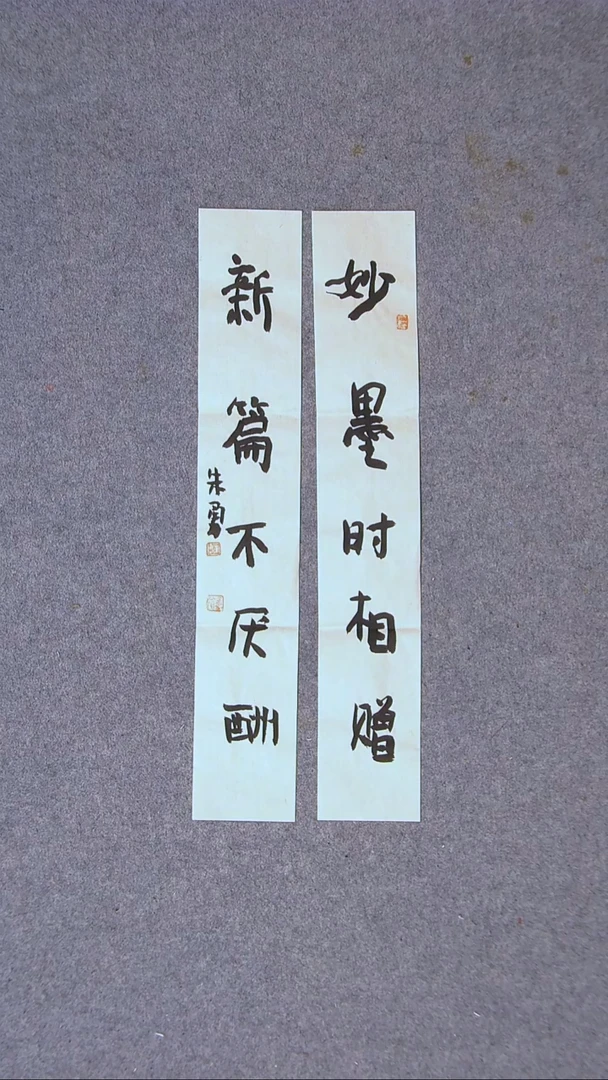 妙墨时相赠
新篇不厌酬
朱勇